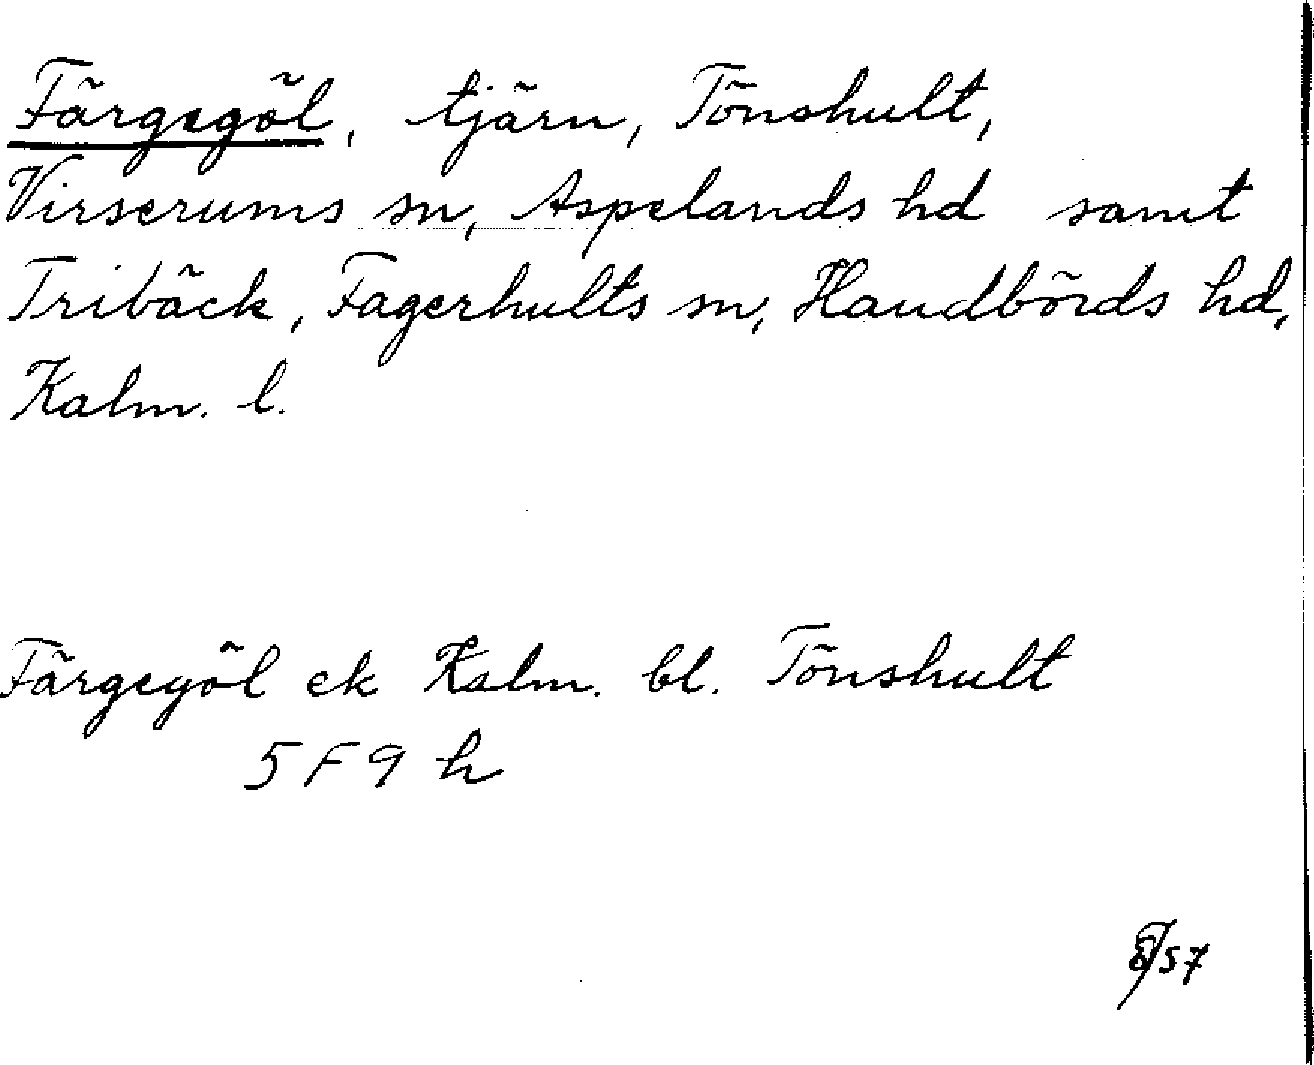 Färgegöl, tjärn, Tönshult,
Virserums sn, Aspelands hd samt
Tribäck, Fagerhults sn, Handbörds hd,
Kalm. l.
Färgegöl ek Kalm. bl. Tönshult
5 F 9 h